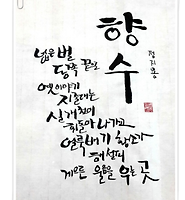 향수
정지용
넓은 벌
동쪽 끝으로
옛이야기
지줄대는
실개천이
휘돌아 나가고
얼룩배기 황소가
해설피
게으른 울음을 우는 곳